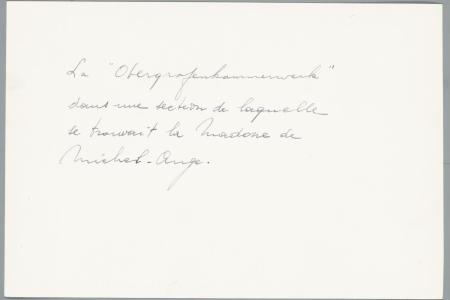 La "Obergrafenhammerwerk"
dans une section de laquelle
se trouvait la Madone de
Michel-Ange.